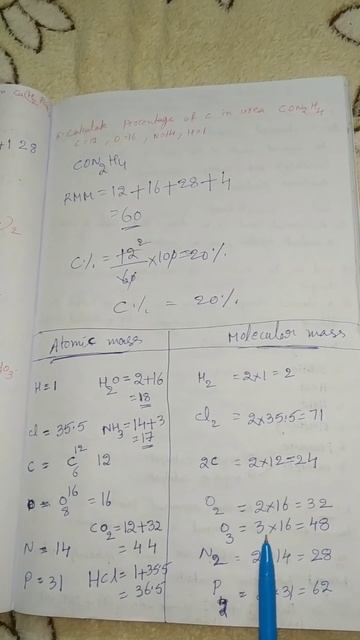 6. Calculate Percentage of C in urea CON2H4
C=12, O=16, N=14, H=1
CON2H4
RMM = 12+16+28+4
= 60
C% = 12/60 × 100 = 20%
C% = 20%
Atomic mass
H=1
H2O = 2+16
= 18
Cl = 35.5
NH3 = 14+3
= 17
C = C 12 6 12
O 16 8 = 16
CO2 = 12+32
= 44
N = 14
P = 31
HCl = 1+35.5
= 36.5
Molecular mass
H2 = 2×1 = 2
Cl2 = 2×35.5 = 71
2C = 2×12 = 24
O2 = 2×16 = 32
O3 = 3×16 = 48
N2 = 2×14 = 28
P2 = 31 = 62
+1 28